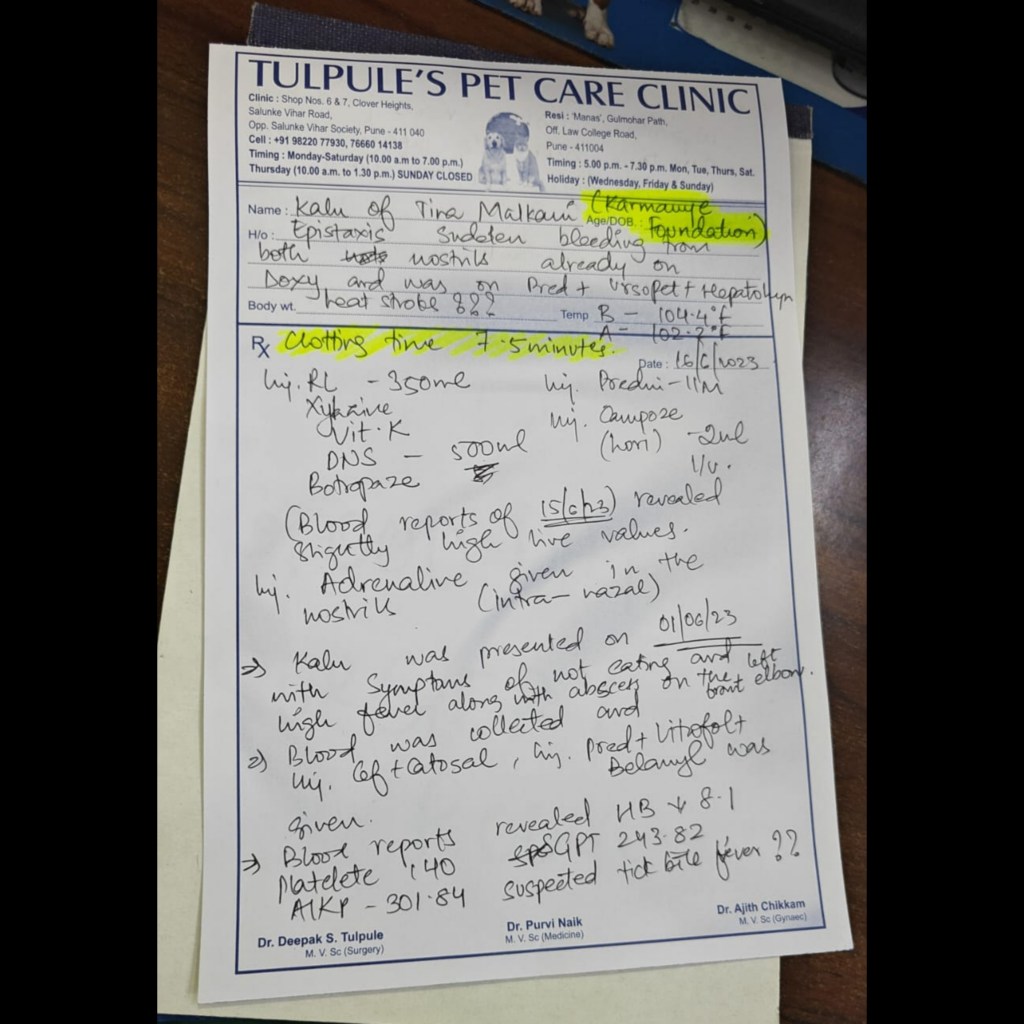 TULPULE'S PET CARE CLINIC
Clinic : Shop Nos. 6 & 7, Clover Heights,
Salunke Vihar Road,
Opp. Salunke Vihar Society, Pune - 411 040
Cell : +91 98220 77930, 76660 14138
Timing : Monday-Saturday (10.00 a.m to 7.00 p.m.)
Thursday (10.00 a.m. to 1.30 p.m.) SUNDAY CLOSED
Resi : 'Manas', Gulmohar Path,
Off. Law College Road,
Pune - 411004
Timing : 5.00 p.m. - 7.30 p.m. Mon, Tue, Thurs, Sat.
Holiday : (Wednesday, Friday & Sunday)
Name : Kalu of Tina Malkani (Karmawye
Age/DOB : Foundation)
H/o : Epistaxis Sudden bleeding from
both nostrils already on
Doxy and was on Pred + Ursopet +
Body wt. heat stroke ??? Temp B - 104.4°F
A - 102.2°F
Rx Clotting time 7.5 minutes.
Date : 16/6/2023
Inj. RL - 350ml
Vit. K
DNS - 500ml
Botropaze
Inj. Predni - 1
Inj. Campoze
(lori) - 2ml
I/v.
(Blood reports of 15/6/23) revealed
slightly high live values.
Inj. Adrenaline given in the
nostrils (intra-nazal)
=> Kalu was presented on 01/06/23
with symptoms of not eating and
high fever along with abscess on the left
front elbow.
2) Blood was collected and
Inj. Cef + Catosal, Inj. Pred +
Belamyl was
given.
=> Blood reports revealed HB ↓ 8.1
Platelete 140 SGPT 243.82
AlKP - 301.84 suspected tick bite fever ??
Dr. Deepak S. Tulpule
M. V. Sc (Surgery)
Dr. Purvi Naik
M. V. Sc (Medicine)
Dr. Ajith Chikkam
M. V. Sc (Gynaec)